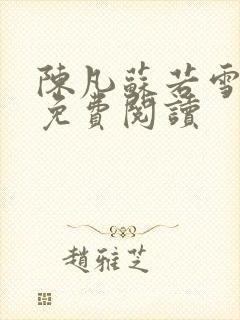 陳凡蘇若雪
免費閱讀
趙雅芝